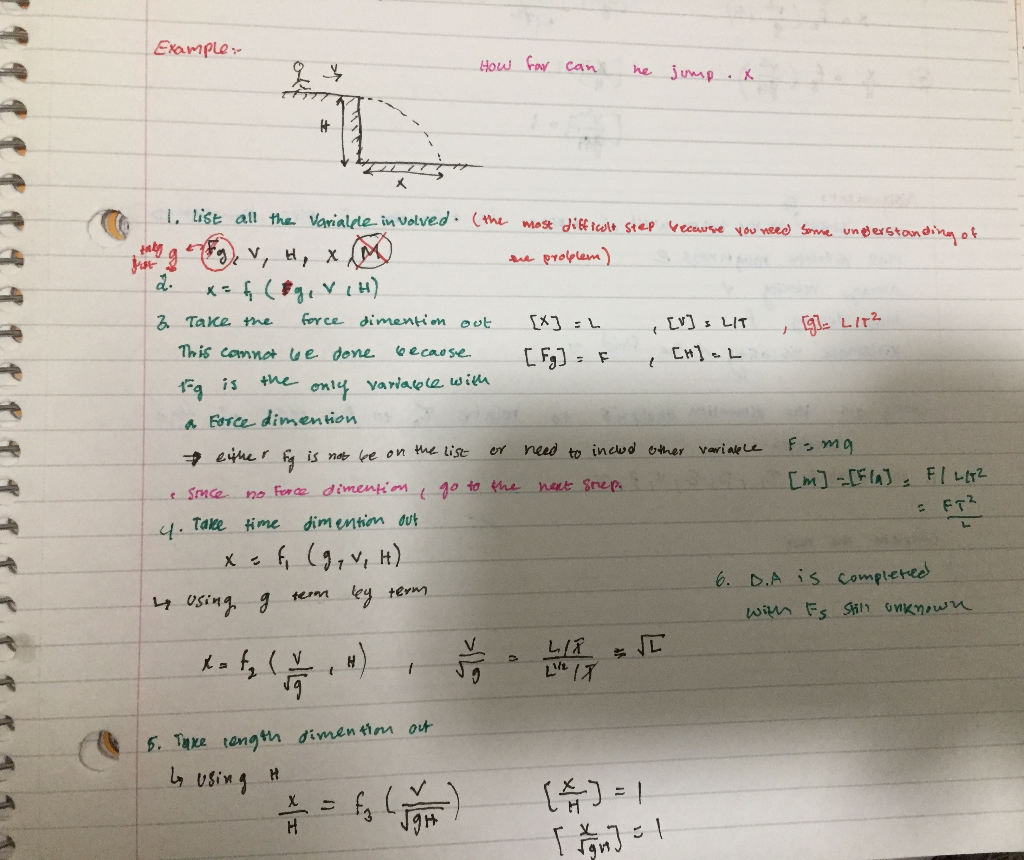 Example:-
V
How far can he jump. x
H
x
1. List all the Variable involved. (the most difficult step because you need some understanding of
the problem)
g Fg, V, H, x, M
2. x = f₁ (g, V, H)
3. Take the force dimention out [x] = L , [V] = L/T , [g] = L/T²
This cannot be done because [Fg] = F , [H] = L
Fg is the only variable with
a Force dimention
⇒ either Fg is not be on the list or need to includ other variable F = ma
• Since no Force dimention, go to the next step. [m] = [F/a] = F/L/T²
= FT²/L
4. Take time dimention out
x = f₁ (g, V, H)
↳ Using g term by term
6. D.A is completed
with F₃ still unknown
x = f₂ (V/√g, H) , V/√g = L/T / L^1/2/T = √L
5. Take length dimention out
↳ Using H
x/H = f₃ (V/√gH) [x/H] = 1
[x/√gH] = 1